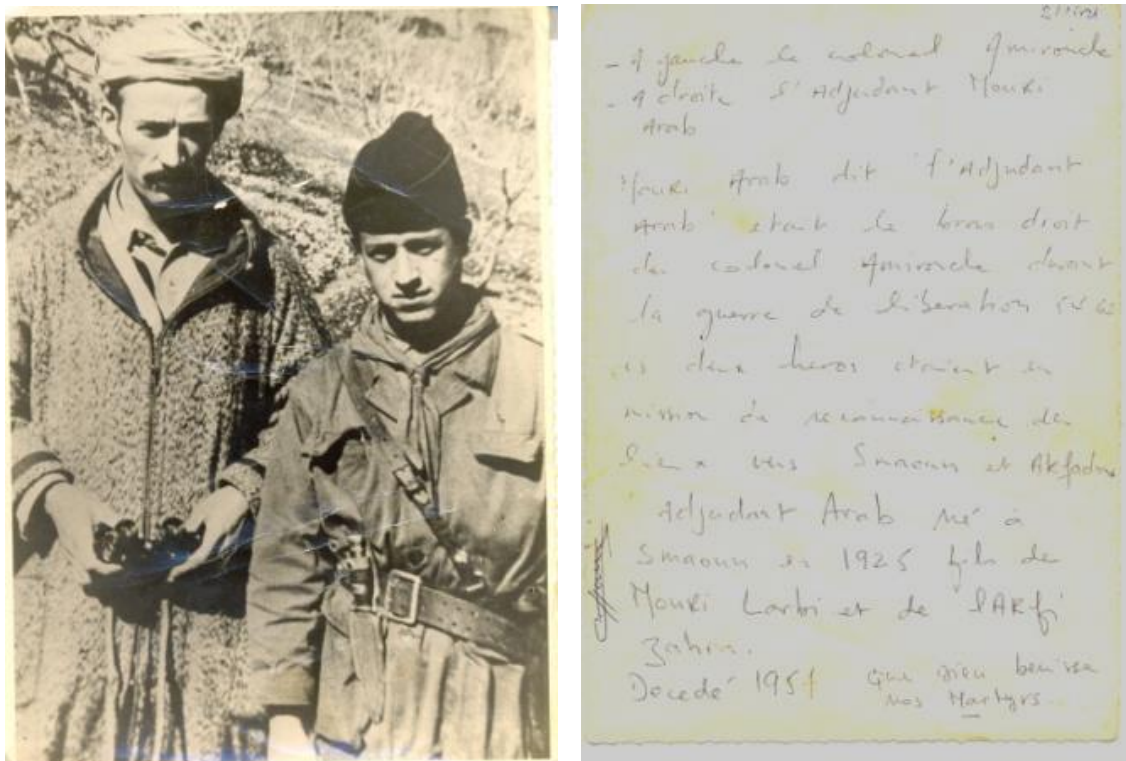 - A gauche le colonel Amirouche
- A droite l'Adjudant Mouri
Arab
Mouri Arab dit "l'Adjudant
Arab" etait le bras droit
du colonel Amirouche durant
la guerre de liberation
deux heros etaient en
mission de reconnaissance des
lieux vers Smaoun et Akfadou
Adjudant Arab né à
Smaoun en 1925 fils de
Mouri Larbi et de lARfi
Zahra.
Decedé 195 que Dieu benisse
nos Martyrs